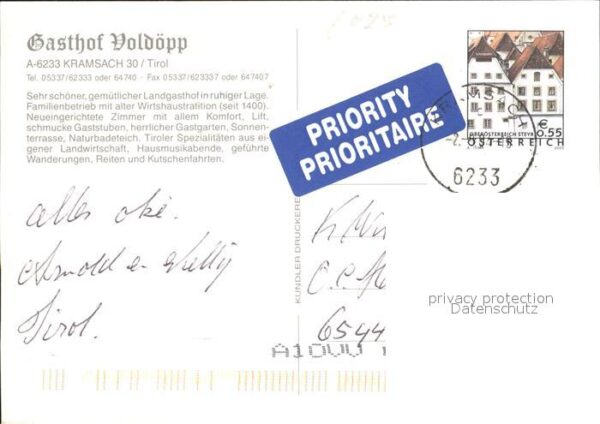 Gasthof Voldöpp
A-6233 KRAMSACH 30 / Tirol
Tel. 05337/62333 oder 64740 - Fax 05337/623337 oder 647407
Sehr schöner, gemütlicher Landgasthof in ruhiger Lage.
Familienbetrieb mit alter Wirtshaustratition (seit 1400).
Neueingerichtete Zimmer mit allem Komfort, Lift,
schmucke Gaststuben, herrlicher Gastgarten, Sonnen-
terrasse, Naturbadeteich. Tiroler Spezialitäten aus ei-
gener Landwirtschaft, Hausmusikabende, geführte
Wanderungen, Reiten und Kutschenfahrten.
PRIORITY
PRIORITAIRE
€
OBERÖSTERREICH STEYR 0,55
ÖSTERREICH
6233
KÜNDLER DRUCKEREI
alles oké.
Arnold en Nelly
Tirol.
6544
privacy protection
Datenschutz